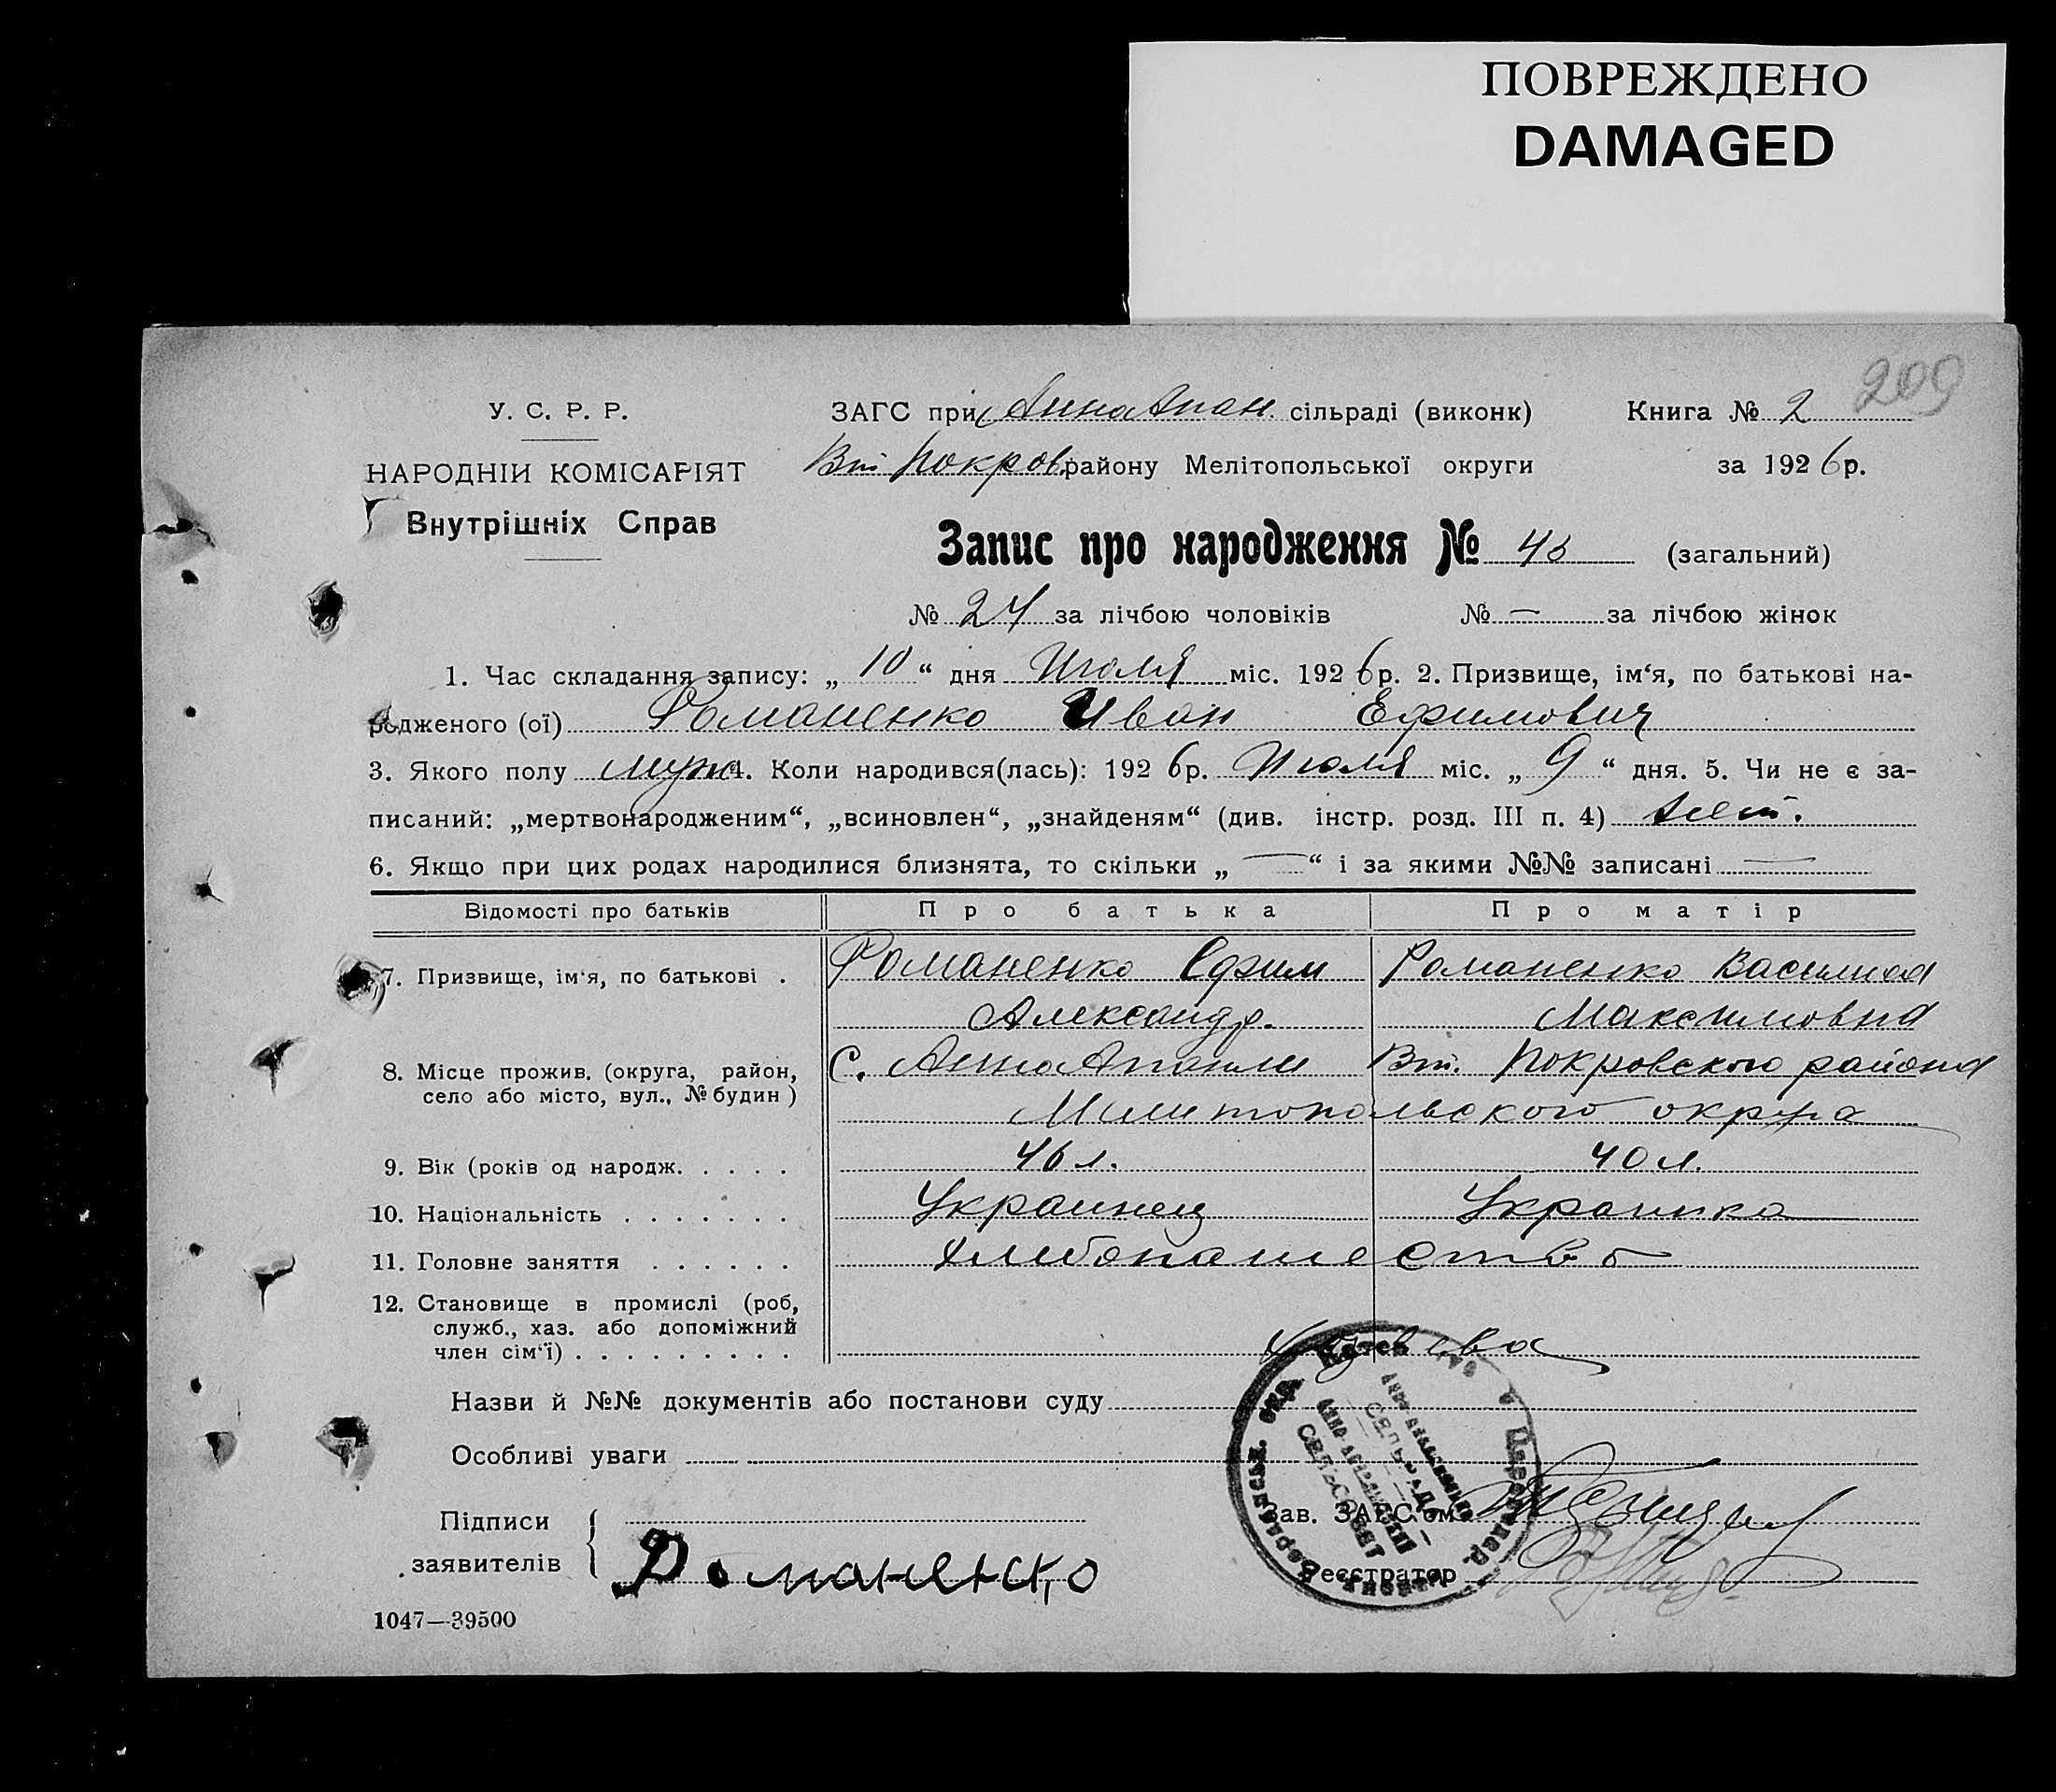 ПОВРЕЖДЕНО
DAMAGED
209
У. С. Р. Р.
ЗАГС при АннаАпан. сільраді (виконк)
Книга № 2
НАРОДНІЙ КОМІСАРІЯТ
Вт Покров. району Мелітопольської округи
за 1926 р.
Внутрішніх Справ
Запис про народження № 45 (загальний)
№ 24 за лічбою чоловіків № — за лічбою жінок
1. Час складання запису: „ 10 “ дня Июля міс. 1926 р. 2. Призвище, ім‘я, по батькові на-
родженого (ої) Романенко Иван Ефимович
3. Якого полу муж 4. Коли народився(лась): 1926 р. Июля міс. „ 9 “ дня. 5. Чи не є за-
писаний: „мертвонародженим“, „всиновлен“, „знайденям“ (див. інстр. розд. III п. 4) Нет.
6. Якщо при цих родах народилися близнята, то скільки „ — “ і за якими №№ записані —
Відомості про батьків Про батька Про матір
7. Призвище, ім‘я, по батькові . Романенко Ефим Романенко Василиса
Александр. Максимовна
8. Місце прожив. (округа, район, С. АннаАпанли Вт. Покровского района
село або місто, вул., № будин )
Милитопольского округа
9. Вік (років од народж. . . . . 46 л. 40 л.
10. Національність . . . . . . . Украинец Украинка
11. Головне заняття . . . . . . Хлибопашество
12. Становище в промислі (роб,
служб., хаз. або допоміжний
член сім‘ї) . . . . . . . . .
Назви й №№ документів або постанови суду
Особливі уваги
Підписи
Зав. ЗАГС‘ом
заявителів Романенко
Реєстратор
1047—39500